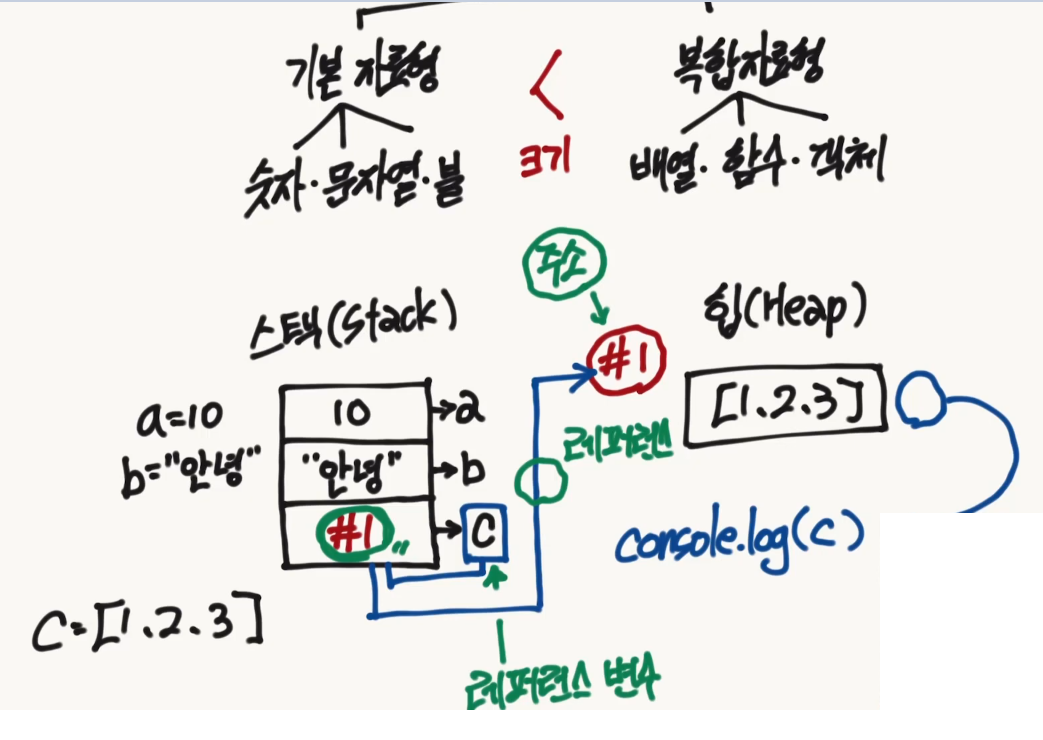 기본 자료형
복합자료형
크기
숫자·문자열·불
배열·함수·객체
주소
스택(Stack)
힙(Heap)
#1
a=10
10
a
[1.2.3]
b="안녕"
"안녕"
b
레퍼런스
#1
C
console.log(c)
C=[1.2.3]
레퍼런스 변수